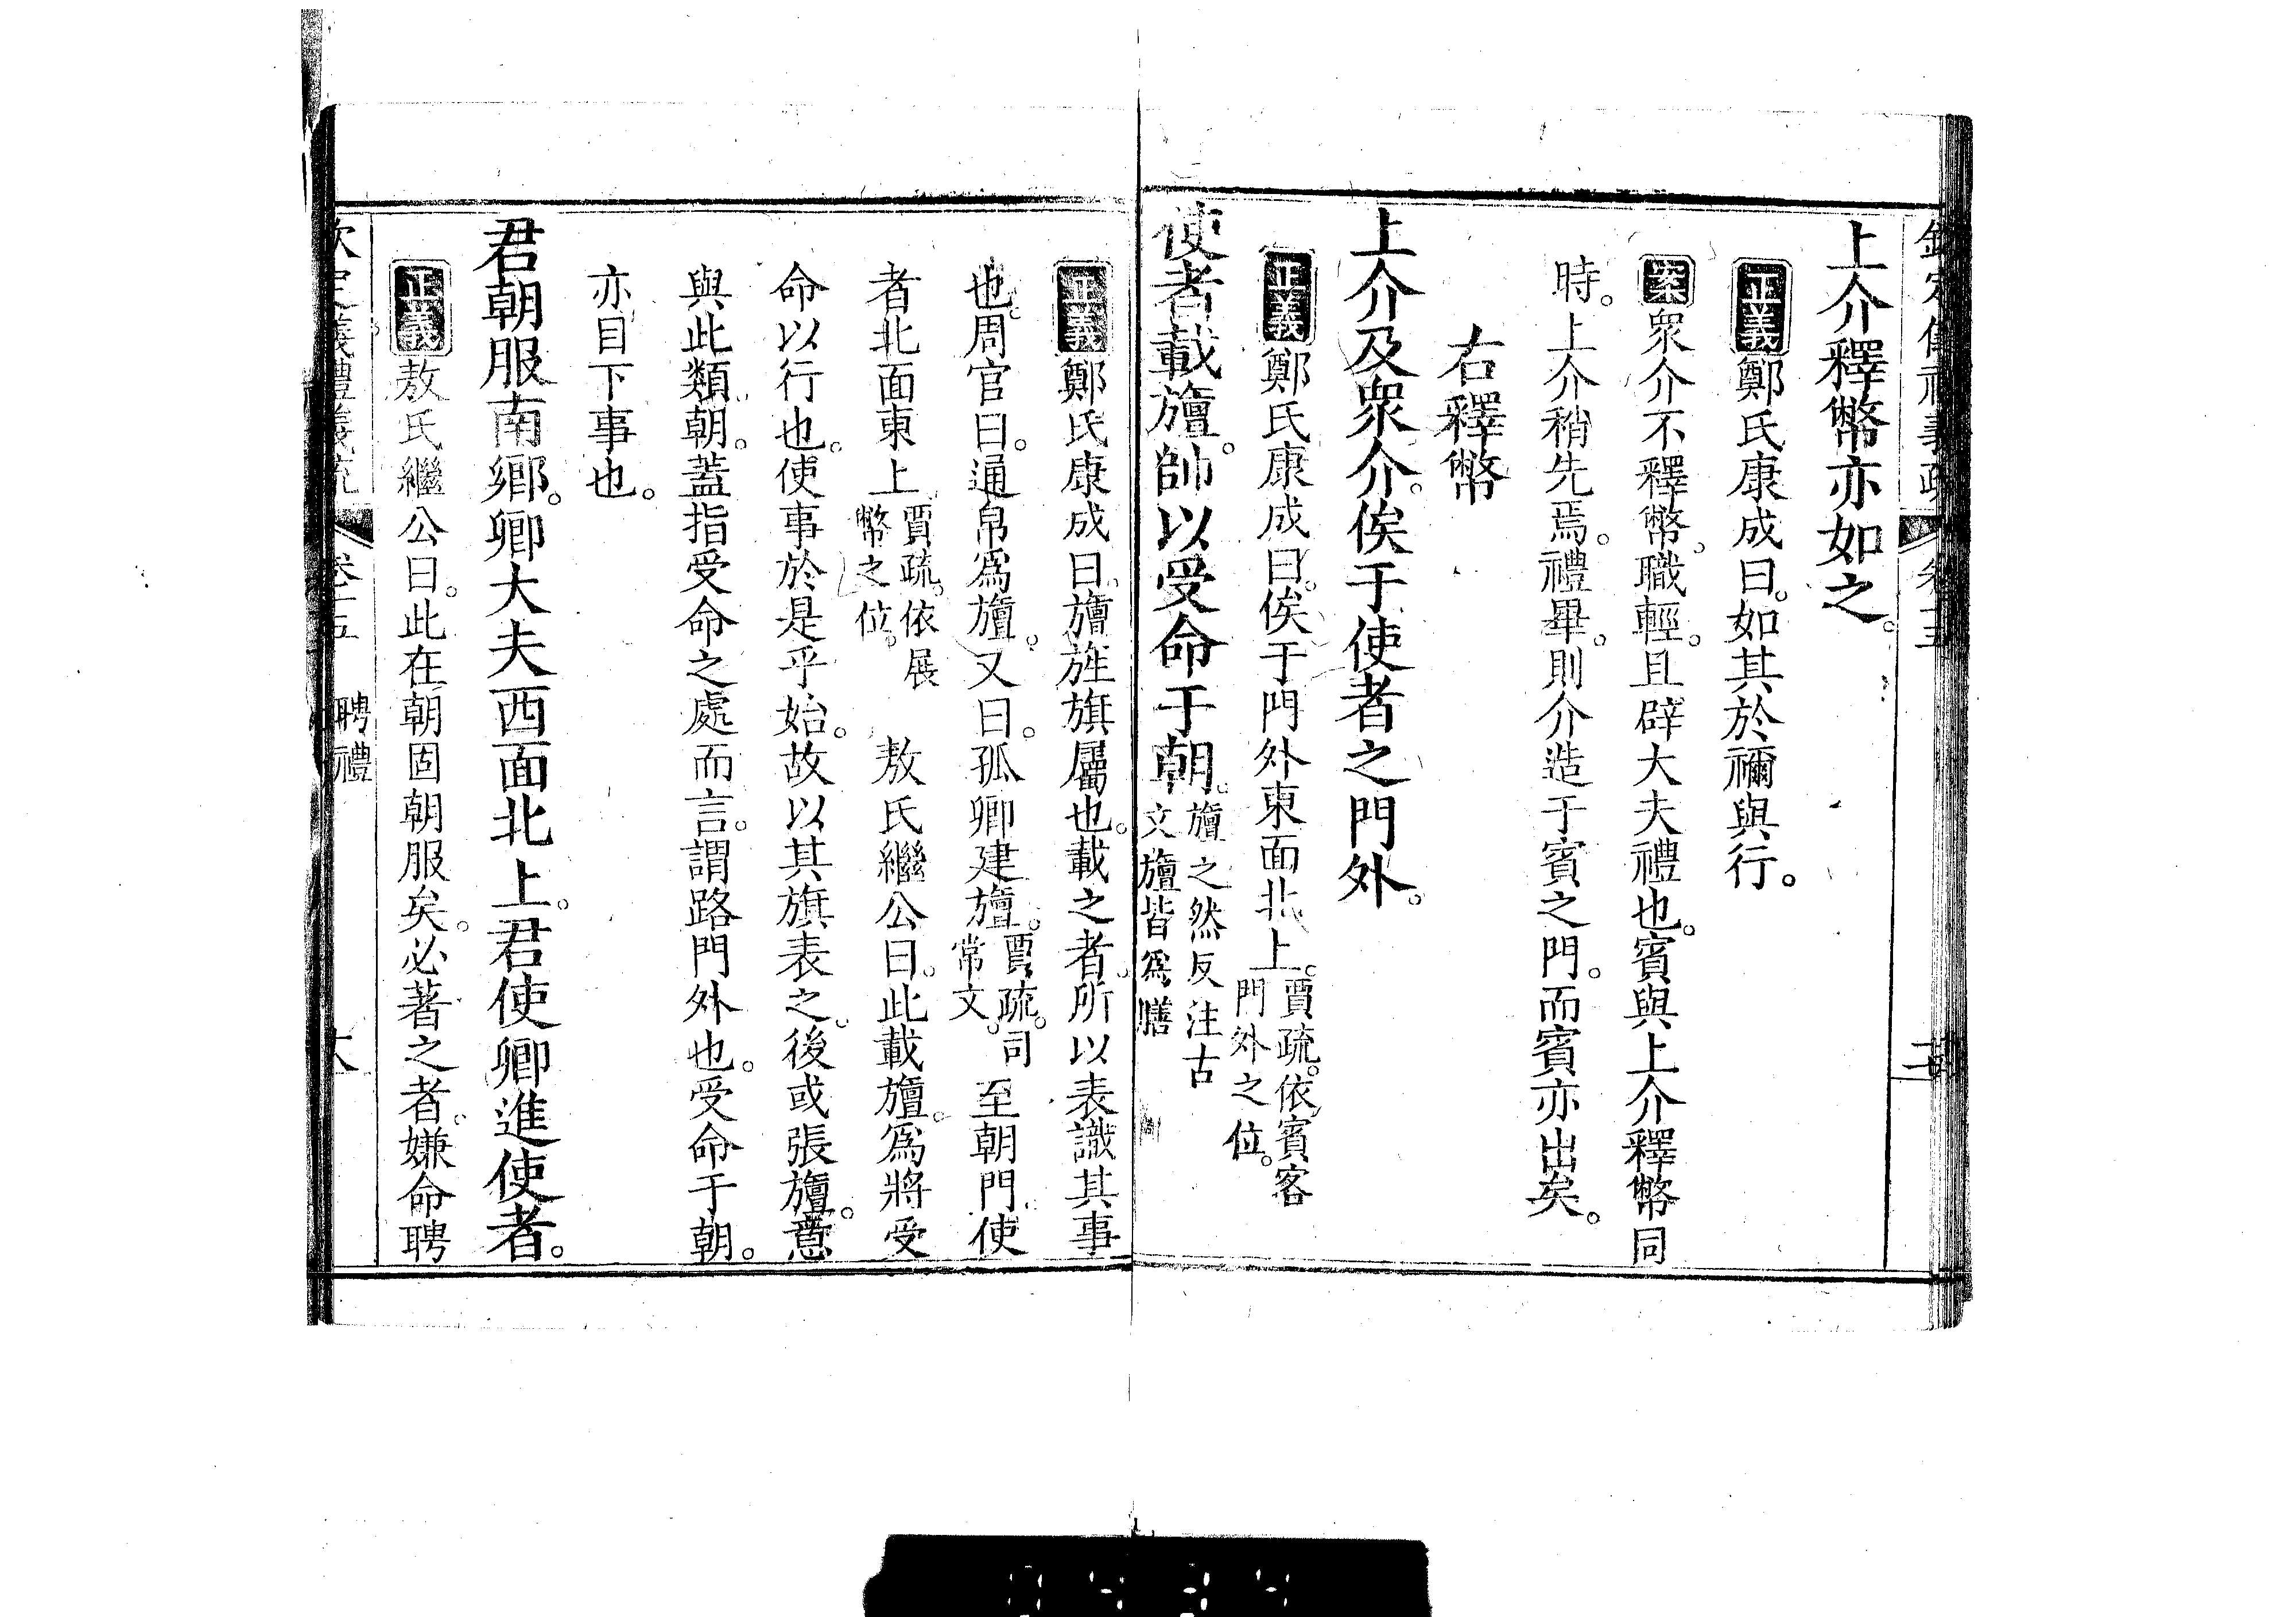 上介釋幣亦如之。
正義鄭氏康成曰。如其於禰與行。
案衆介不釋幣。職輕。且辟大夫禮也。賓與上介釋幣同
時。上介稍先焉。禮畢。則介造于賓之門。而賓亦出矣。
右釋幣
上介及衆介。俟于使者之門外。
正義鄭氏康成曰。俟于門外。東面北上。賈疏。依賓客門外之位。
使者載旜。帥以受命于朝。旜之然反注古文旜皆爲膳
正義鄭氏康成曰。旜旌旗屬也。載之者。所以表識其事
也。周官曰。通帛爲旜。又曰。孤卿建旜。賈疏。司常文。至朝門。使
者北面東上。賈疏。依展幣之位。敖氏繼公曰。此載旜。爲將受
命以行也。使事於是乎始。故以其旗表之。後或張旜。意
與此類。朝。蓋指受命之處而言。謂路門外也。受命于朝。
亦目下事也。
君朝服南鄉。卿大夫西面北上。君使卿進使者。
正義敖氏繼公曰。此在朝固朝服矣。必著之者。嫌命聘
卷十五 聘禮